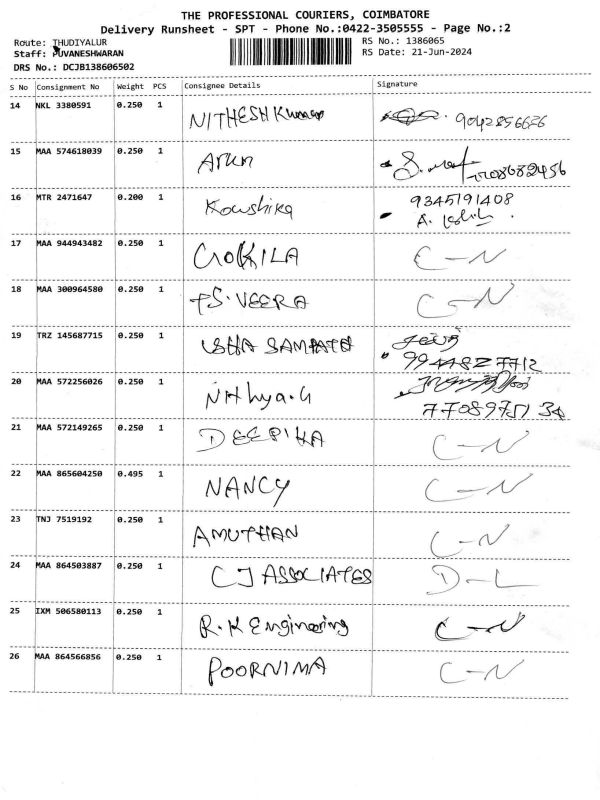 THE PROFESSIONAL COURIERS, COIMBATORE
Delivery Runsheet - SPT - Phone No.:0422-3505555 - Page No.:2
Route: THUDIYALUR RS No.: 1386065
Staff: PUVANESHWARAN RS Date: 21-Jun-2024
DRS No.: DCJB138606502
S No Consignment No Weight PCS Consignee Details Signature
14 NKL 3380591 0.250 1 NITHESH Kumar 9042856626
15 MAA 574618039 0.250 1 Arun
16 MTR 2471647 0.200 1 Kowshika 9345191408
17 MAA 944943482 0.250 1 GOKILA C-N
18 MAA 300964580 0.250 1 TS.VEERA C-N
19 TRZ 145687715 0.250 1 USHA SAMPATH 9944827712
20 MAA 572256026 0.250 1 Nithya.G 7708975134
21 MAA 572149265 0.250 1 DEEPIKA C-N
22 MAA 865604250 0.495 1 NANCY C-N
23 TNJ 7519192 0.250 1 AMUTHAN C-N
24 MAA 864503887 0.250 1 CJ ASSOCIATES D-L
25 IXM 506580113 0.250 1 R.K Engineering C-N
26 MAA 864566856 0.250 1 POORNIMA C-N